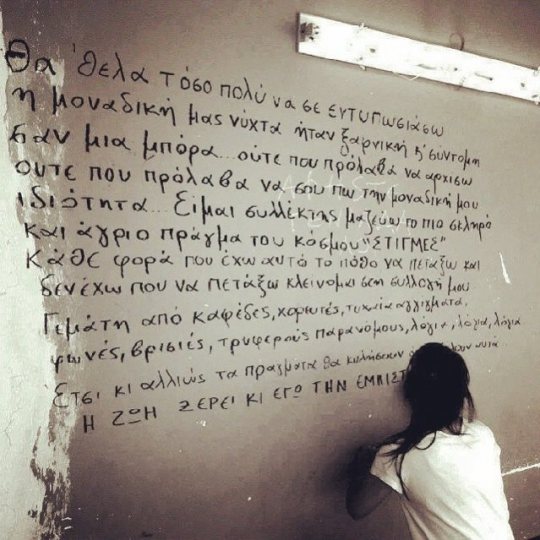 Θα 'θελα τόσο πολύ να σε εντυπωσιάσω
η μοναδική μας νύχτα ήταν ξαφνική κ' σύντομη
σαν μια μπόρα... ούτε που πρόλαβα να αρχίσω
ούτε που πρόλαβα να σου πω την μοναδική μου
ιδιότητα... Είμαι συλλέκτης μαζεύω το πιο σκληρό
και άγριο πράγμα του κόσμου "ΣΤΙΓΜΕΣ"
Κάθε φορά που έχω αυτό το πόθο να πετάξω και
δεν έχω που να πετάξω κλείνομαι στη συλλογή μου
Γεμάτη από καφέδες, χωρισμούς, τυχαία αγγίγματα,
φωνές, βρισιές, τρυφερούς παρανόμους, λόγια, λόγια, λόγια
Έτσι κι αλλιώς τα πράγματα θα κυλήσουν
Η ΖΩΗ ΞΕΡΕΙ ΚΙ ΕΓΩ ΤΗΝ